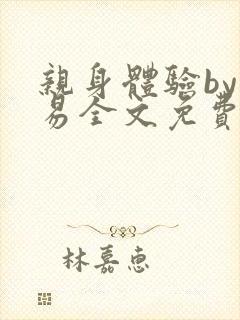 親身體驗by
易全文免費
林嘉惠